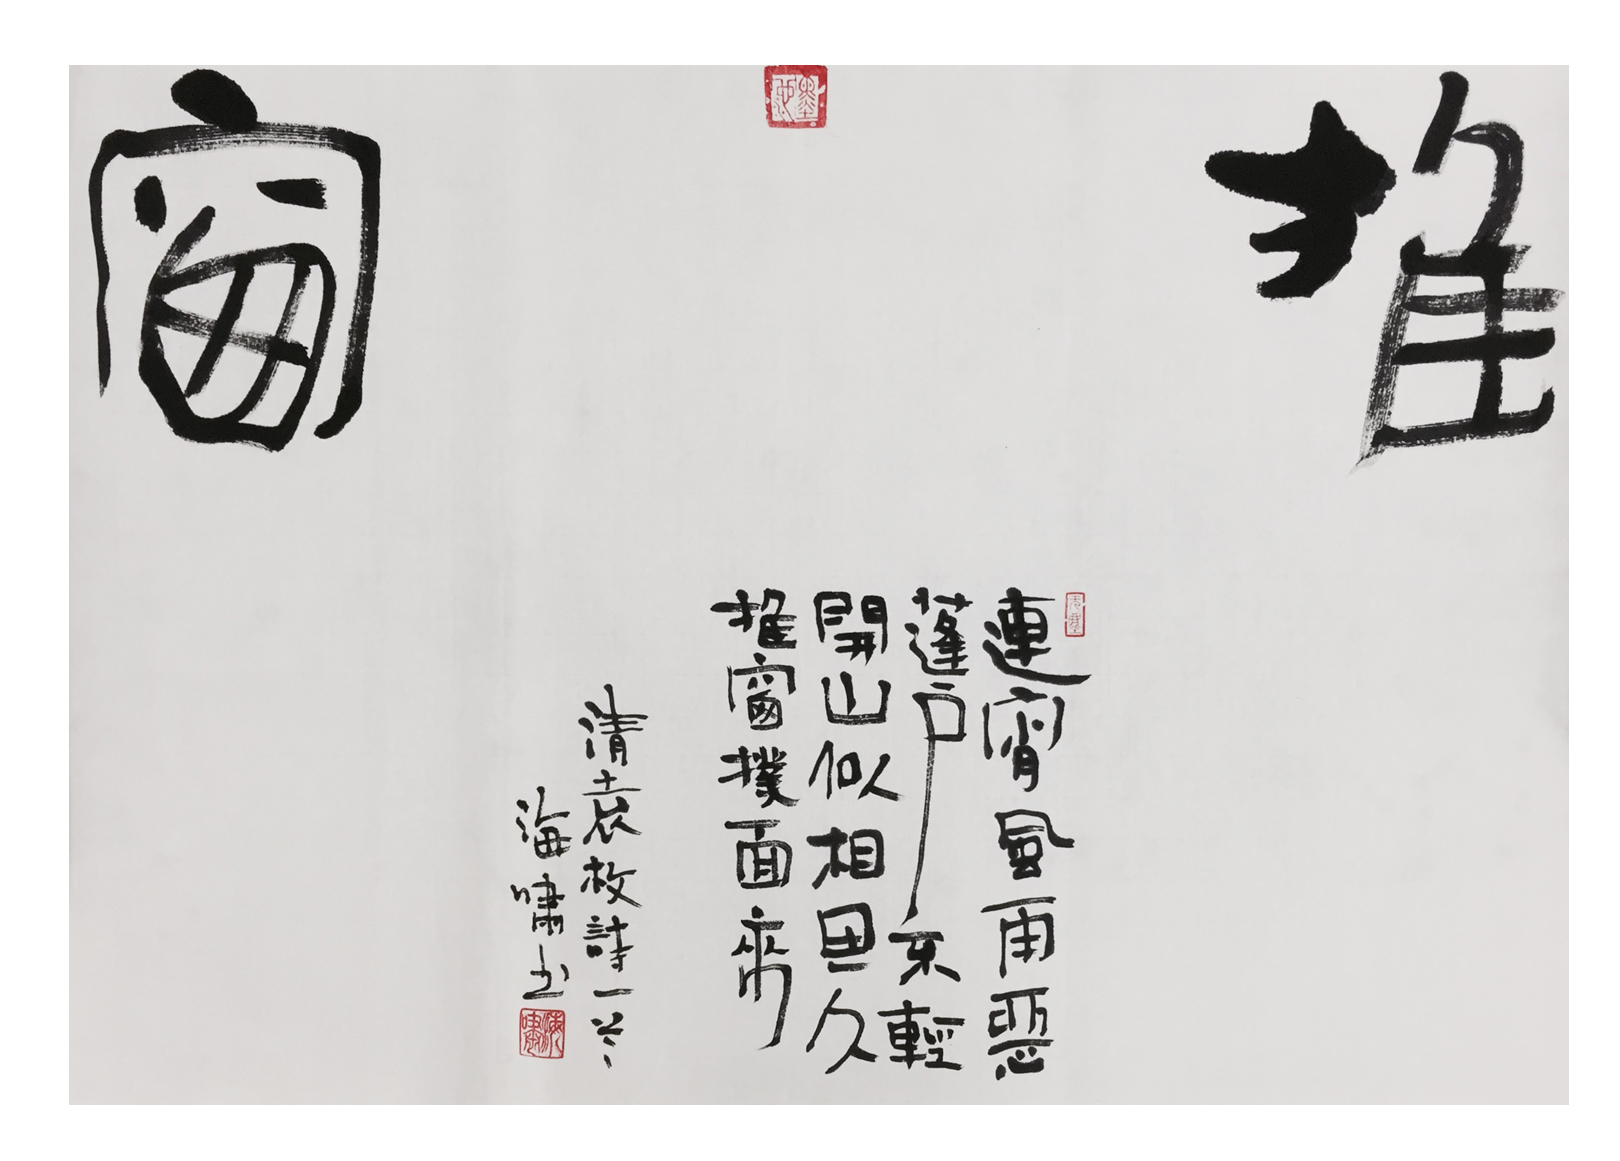 推窗
連宵風雨惡
蓬戶不輕
開山似相思久
推窗撲面來
清袁枚詩一首
海嘯书
海嘯